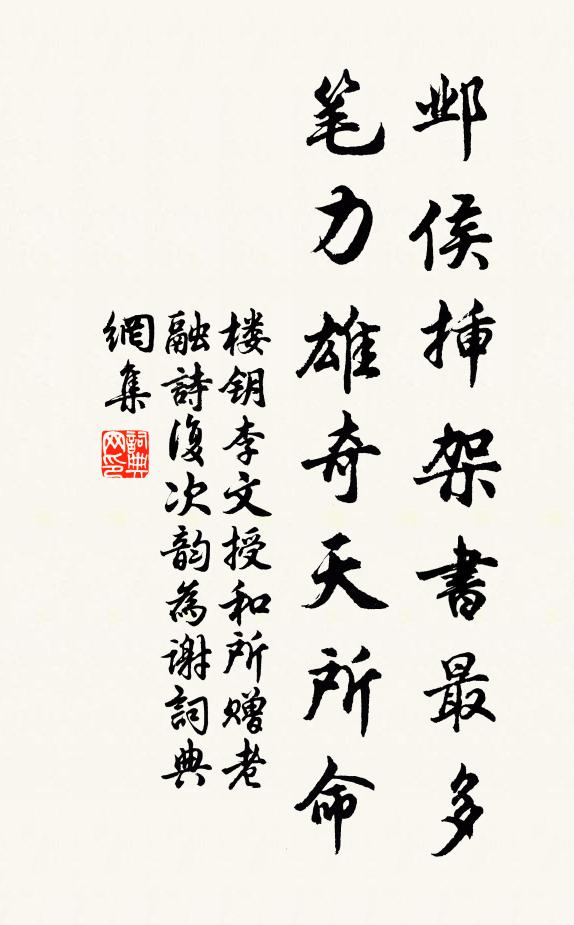 邺侯挿架書最多
笔力雄奇天所命
楼钥李文授和所赠老
融詩復次韵為谢詞典
網集
詞典
网印